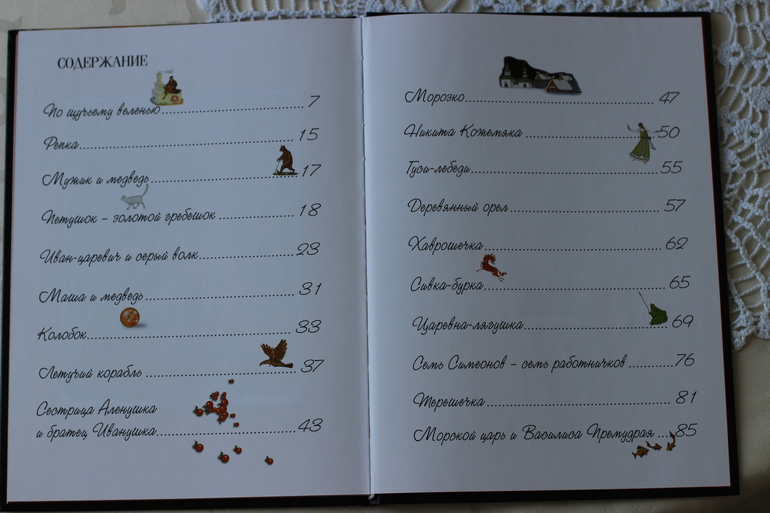 СОДЕРЖАНИЕ
По щучьему веленью 7
Репка 15
Мужик и медведь 17
Петушок – золотой гребешок 18
Иван-царевич и серый волк 23
Маша и медведь 31
Колобок 33
Летучий корабль 37
Сестрица Аленушка
и братец Иванушка 43
Морозко 47
Никита Кожемяка 50
Гуси-лебеди 55
Деревянный орел 57
Хаврошечка 62
Сивка-бурка 65
Царевна-лягушка 69
Семь Симеонов – семь работничков 76
Терешечка 81
Морской царь и Василиса Премудрая 85